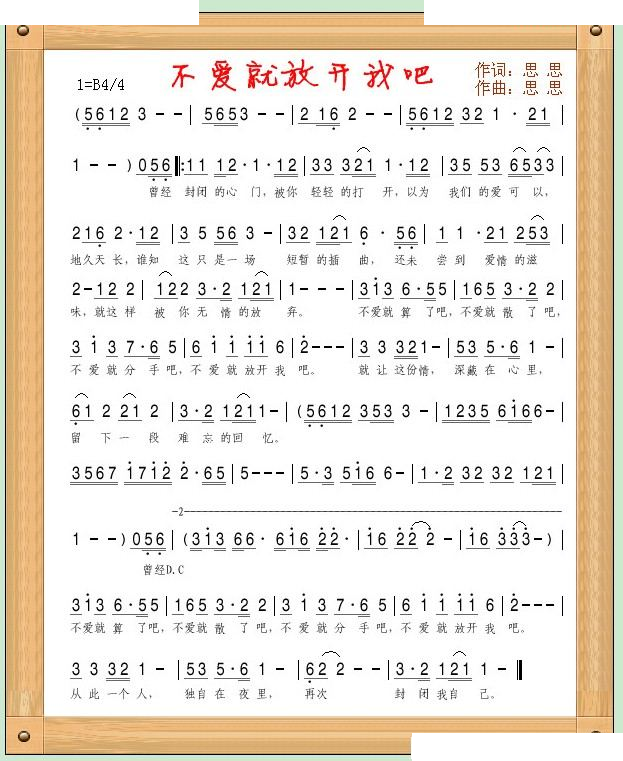 不爱就放开我吧
作词：思 思
1=B4/4
作曲：思 思
(5612 3 - - | 5653 - - | 2 16 2 - - | 5612 32 1 · 21 |
1 - - ) 056 ‖: 11 12 · 1 · 12 | 33 321 1 · 12 | 35 53 6533 |
曾经 封闭的心 门，被你 轻轻的打 开，以为 我们的爱可以，
216 2 · 12 | 3 5 56 3 - | 32 121 6 · 56 | 1 1 · 21 253 |
地久天长，谁知 这只是一场 短暂的插 曲，还未 尝到 爱情的滋
2 - 12 2 | 122 3 · 2 121 | 1 - - - | 313 6 · 55 | 165 3 · 2 2 |
味，就这样 被你无情的放 弃。 不爱就算了吧，不爱就散了吧，
3 1 3 7 · 6 5 | 6 1 1 11 6 | 2 - - - | 3 3 321 - | 53 5 · 6 1 - |
不爱就分手吧，不爱就放开我吧。 就让这份情， 深藏在心里，
61 2 21 2 | 3 · 2 1211 - | (5612 353 3 - | 1235 6166 - |
留下一段难忘的回忆。
3567 1712 2 · 65 | 5 - - - | 5 · 3 516 6 - | 1 · 2 32 32 121 |
-2-
1 - - ) 056 | (313 66 · 616 22 · | 16 22 2 - | 16 333 - ) |
曾经D.C
313 6 · 55 | 165 3 · 2 2 | 3 1 3 7 · 6 5 | 6 1 11 6 | 2 - - - |
不爱就算了吧，不爱就散了吧，不爱就分手吧，不爱就放开我吧。
3 3 32 1 - | 53 5 · 6 1 - | 62 2 - - | 3 · 2 121 1 - ‖
从此一个人， 独自在夜里， 再次 封闭我自己。